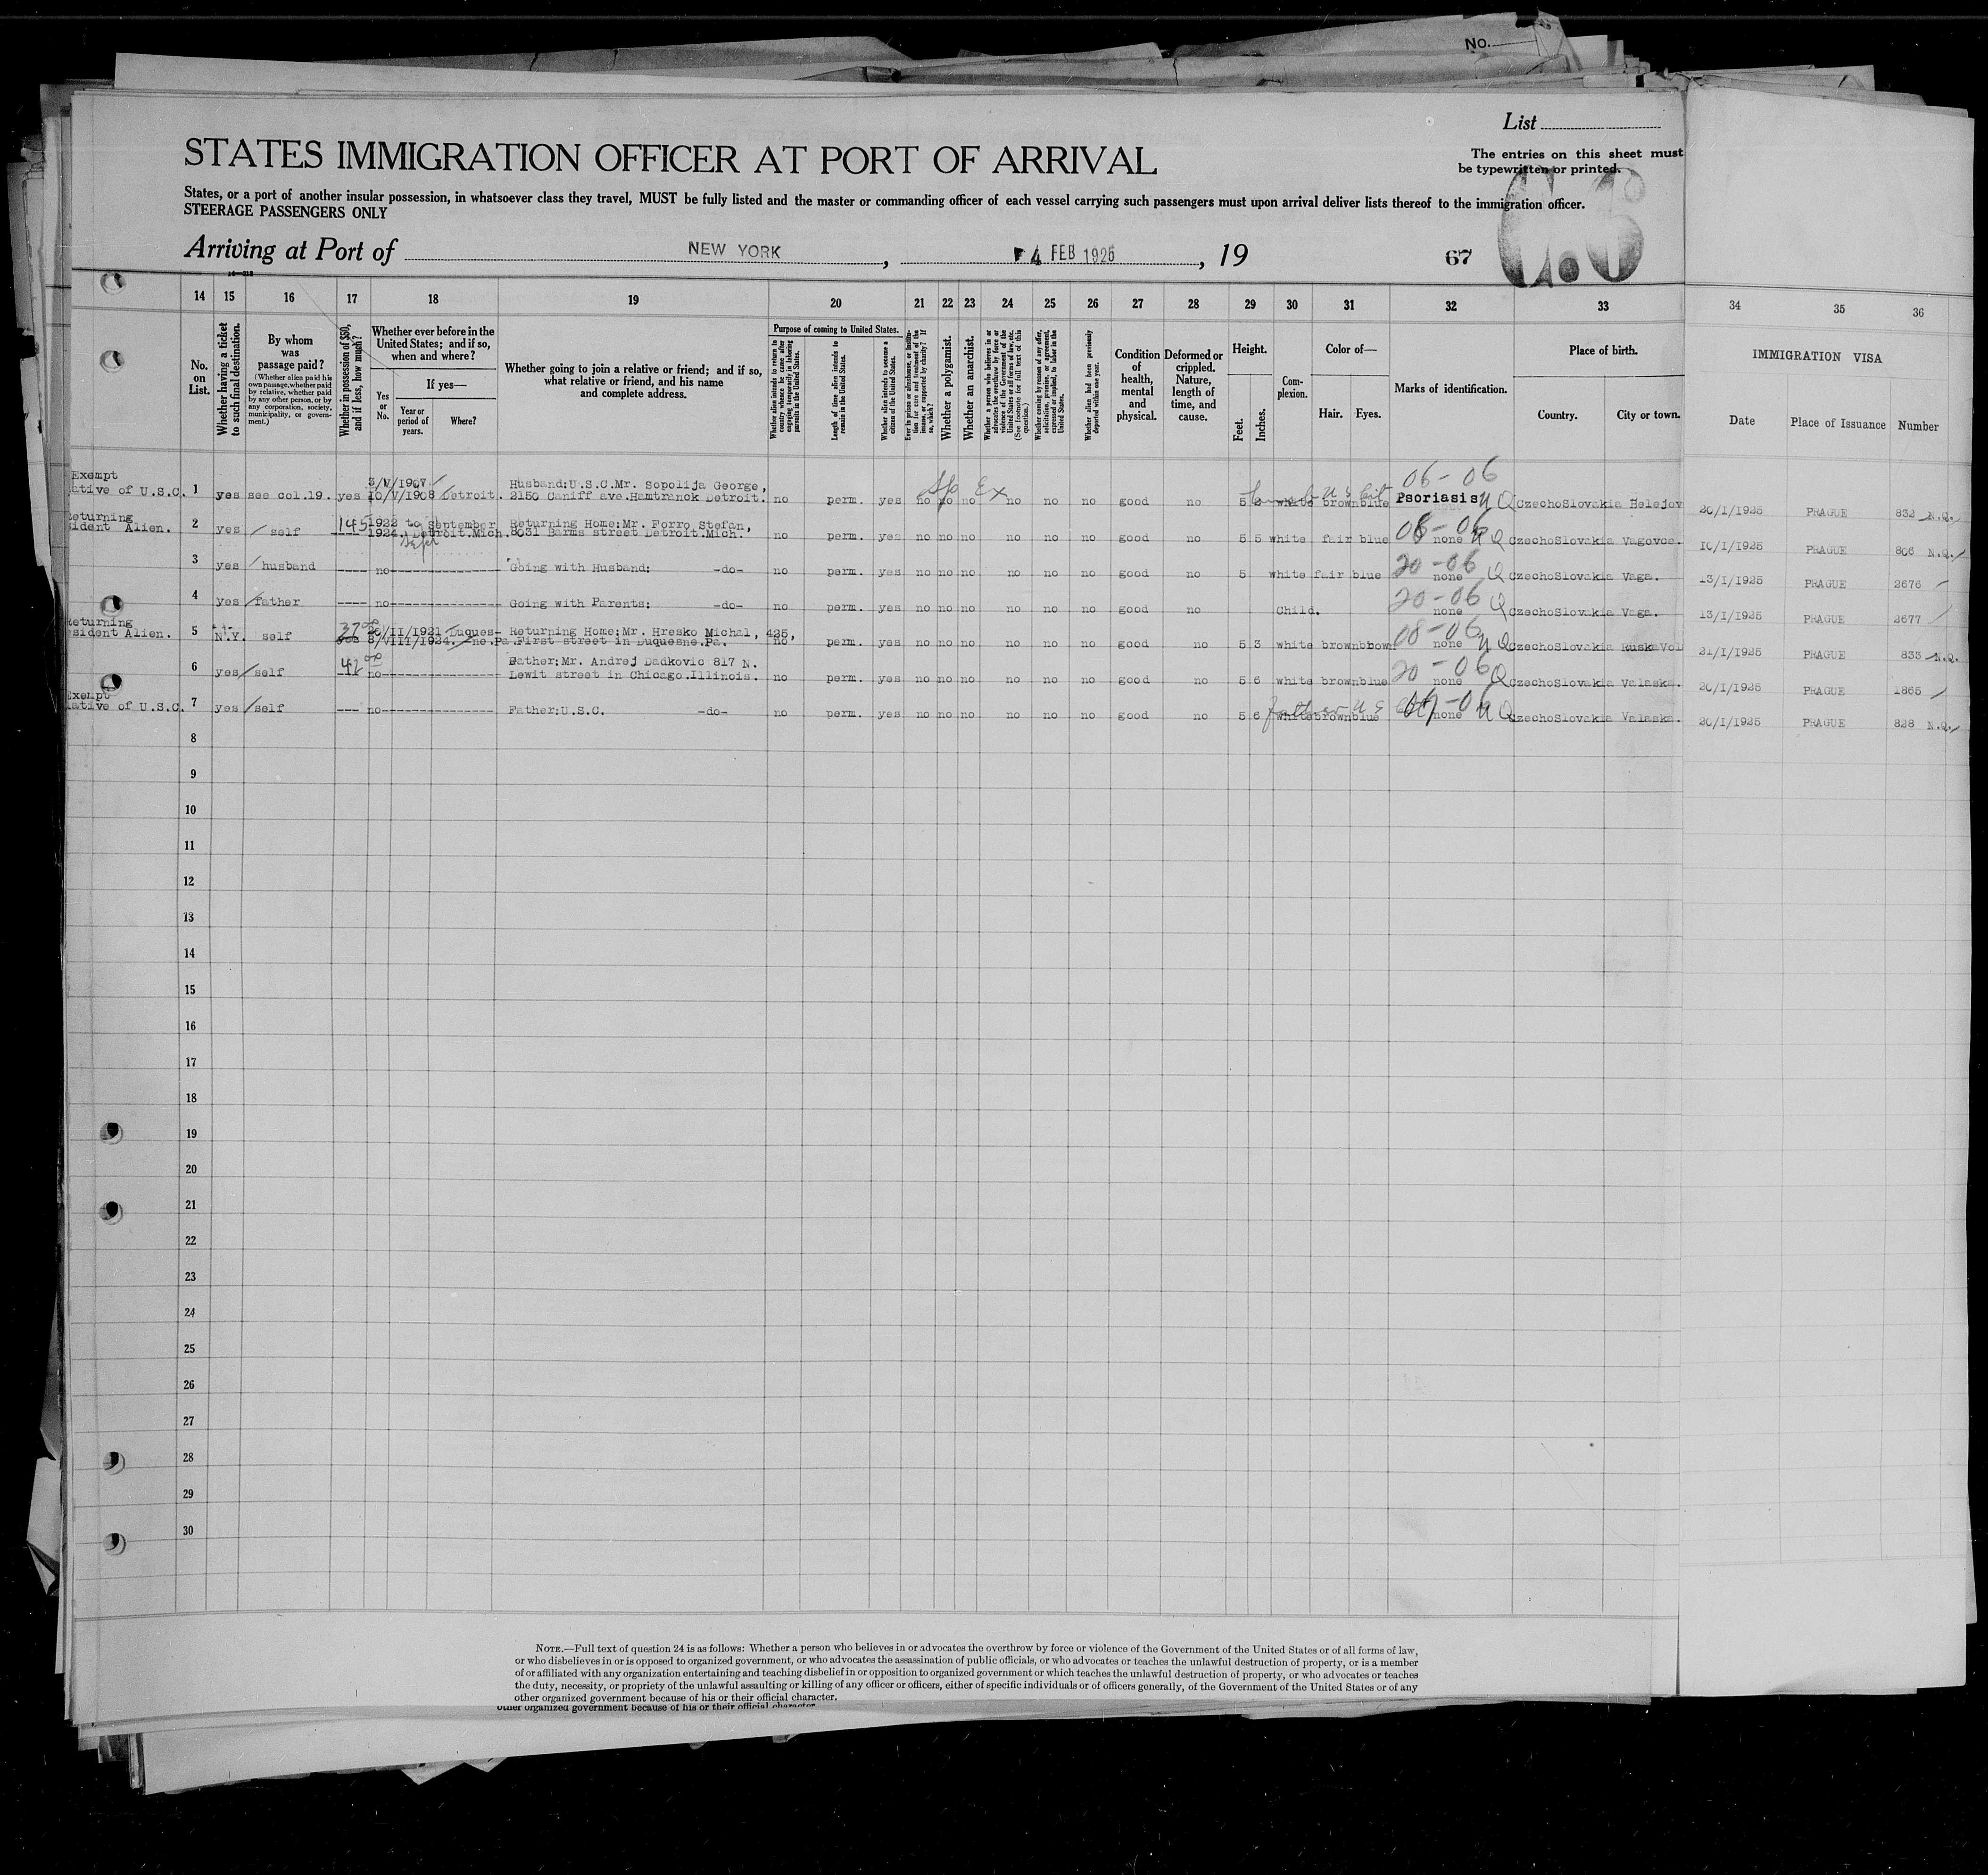 No.
List
STATES IMMIGRATION OFFICER AT PORT OF ARRIVAL
The entries on this sheet must
be typewritten or printed.
States, or a port of another insular possession, in whatsoever class they travel, MUST be fully listed and the master or commanding officer of each vessel carrying such passengers must upon arrival deliver lists thereof to the immigration officer.
STEERAGE PASSENGERS ONLY
Arriving at Port of NEW YORK, 4 FEB 1925, 19 67
14 15 16 17 18 19 20 21 22 23 24 25 26 27 28 29 30 31 32 33 34 35 36
No. on List.
Whether having a ticket to such final destination.
By whom was passage paid?
(Whether alien paid his own passage, whether paid by relative, whether paid by any other person, or by any corporation, society, municipality, or government.)
Whether in possession of $50, and if less, how much?
Whether ever before in the United States; and if so, when and where?
Yes or No.
If yes—
Year or period of years.
Where?
Whether going to join a relative or friend; and if so, what relative or friend, and his name and complete address.
Purpose of coming to United States.
Whether alien intends to return to country whence he came after engaging temporarily in laboring pursuits in the United States.
Length of time alien intends to remain in the United States.
Whether alien intends to become a citizen of the United States.
Ever in prison or almshouse, or institution for care and treatment of the insane, or supported by charity? If so, which?
Whether a polygamist.
Whether an anarchist.
Whether a person who believes in or advocates the overthrow by force or violence of the Government of the United States or all forms of law, etc. (See footnote for full text of this question.)
Whether coming by reason of any offer, solicitation, promise, or agreement, expressed or implied, to labor in the United States.
Whether alien had been previously deported within one year.
Condition of health, mental and physical.
Deformed or crippled. Nature, length of time, and cause.
Height.
Feet. Inches.
Complexion.
Color of—
Hair. Eyes.
Marks of identification.
Place of birth.
Country. City or town.
IMMIGRATION VISA
Date Place of Issuance Number
Exempt 3/V/1907 Husband:U.S.C.Mr. Sopolija George, Sp Ex 06-06
ative of U.S.C. 1 yes see col.19. yes 10/V/1908 Detroit. 2150 Caniff ave.Hamtranck Detroit. no perm. yes no no no no no no good no 5 white brown blue Psoriasis N Q CzechoSlovakia Belejov 20/I/1925 PRAGUE 832 N.Q.
eturning 1922 to September Returning Home:Mr. Forro Stefan,
sident Alien. 2 yes self 145 1924. Detroit.Mich. 8031 Barms street Detroit.Mich. no perm. yes no no no no no no good no 5 5 white fair blue 08-06 none N Q CzechoSlovakia Vagovce. 10/I/1925 PRAGUE 806 N.Q.
Sept
3 yes husband ---- no Going with Husband: -do- no perm. yes no no no no no no good no 5 white fair blue 20-06 none Q CzechoSlovakia Vaga. 13/I/1925 PRAGUE 2676
4 yes father ---- no Going with Parents: -do- no perm. yes no no no no no no good no Child. 20-06 none Q CzechoSlovakia Vaga. 13/I/1925 PRAGUE 2677
eturning 37 /II/1921 Duques- Returning Home:Mr. Hresko Michal, 425,
sident Alien. 5 N.Y. self 8/VIII/1924. ne.Pa. First street in Duquesne.Pa. no perm. yes no no no no no no good no 5 3 white brown brown 08-06 none N Q CzechoSlovakia RuskaVol 21/I/1925 PRAGUE 833 N.Q.
Father:Mr. Andrej Dadkovic 817 N.
6 yes self 42 no Lewit street in Chicago.Illinois. no perm. yes no no no no no no good no 5 6 white brown blue 20-06 none Q CzechoSlovakia Valaska. 20/I/1925 PRAGUE 1865
Exempt
ative of U.S.C. 7 yes self --- no Father:U.S.C. -do- no perm. yes no no no no no no good no 5 6 father U S white brown blue none N Q CzechoSlovakia Valaska. 20/I/1925 PRAGUE 828 N.Q.
8
9
10
11
12
13
14
15
16
17
18
19
20
21
22
23
24
25
26
27
28
29
30
NOTE.—Full text of question 24 is as follows: Whether a person who believes in or advocates the overthrow by force or violence of the Government of the United States or of all forms of law,
or who disbelieves in or is opposed to organized government, or who advocates the assassination of public officials, or who advocates or teaches the unlawful destruction of property, or is a member
of or affiliated with any organization entertaining and teaching disbelief in or opposition to organized government or which teaches the unlawful destruction of property, or who advocates or teaches
the duty, necessity, or propriety of the unlawful assaulting or killing of any officer or officers, either of specific individuals or of officers generally, of the Government of the United States or of any
other organized government because of his or their official character.
other organized government because of his or their official character